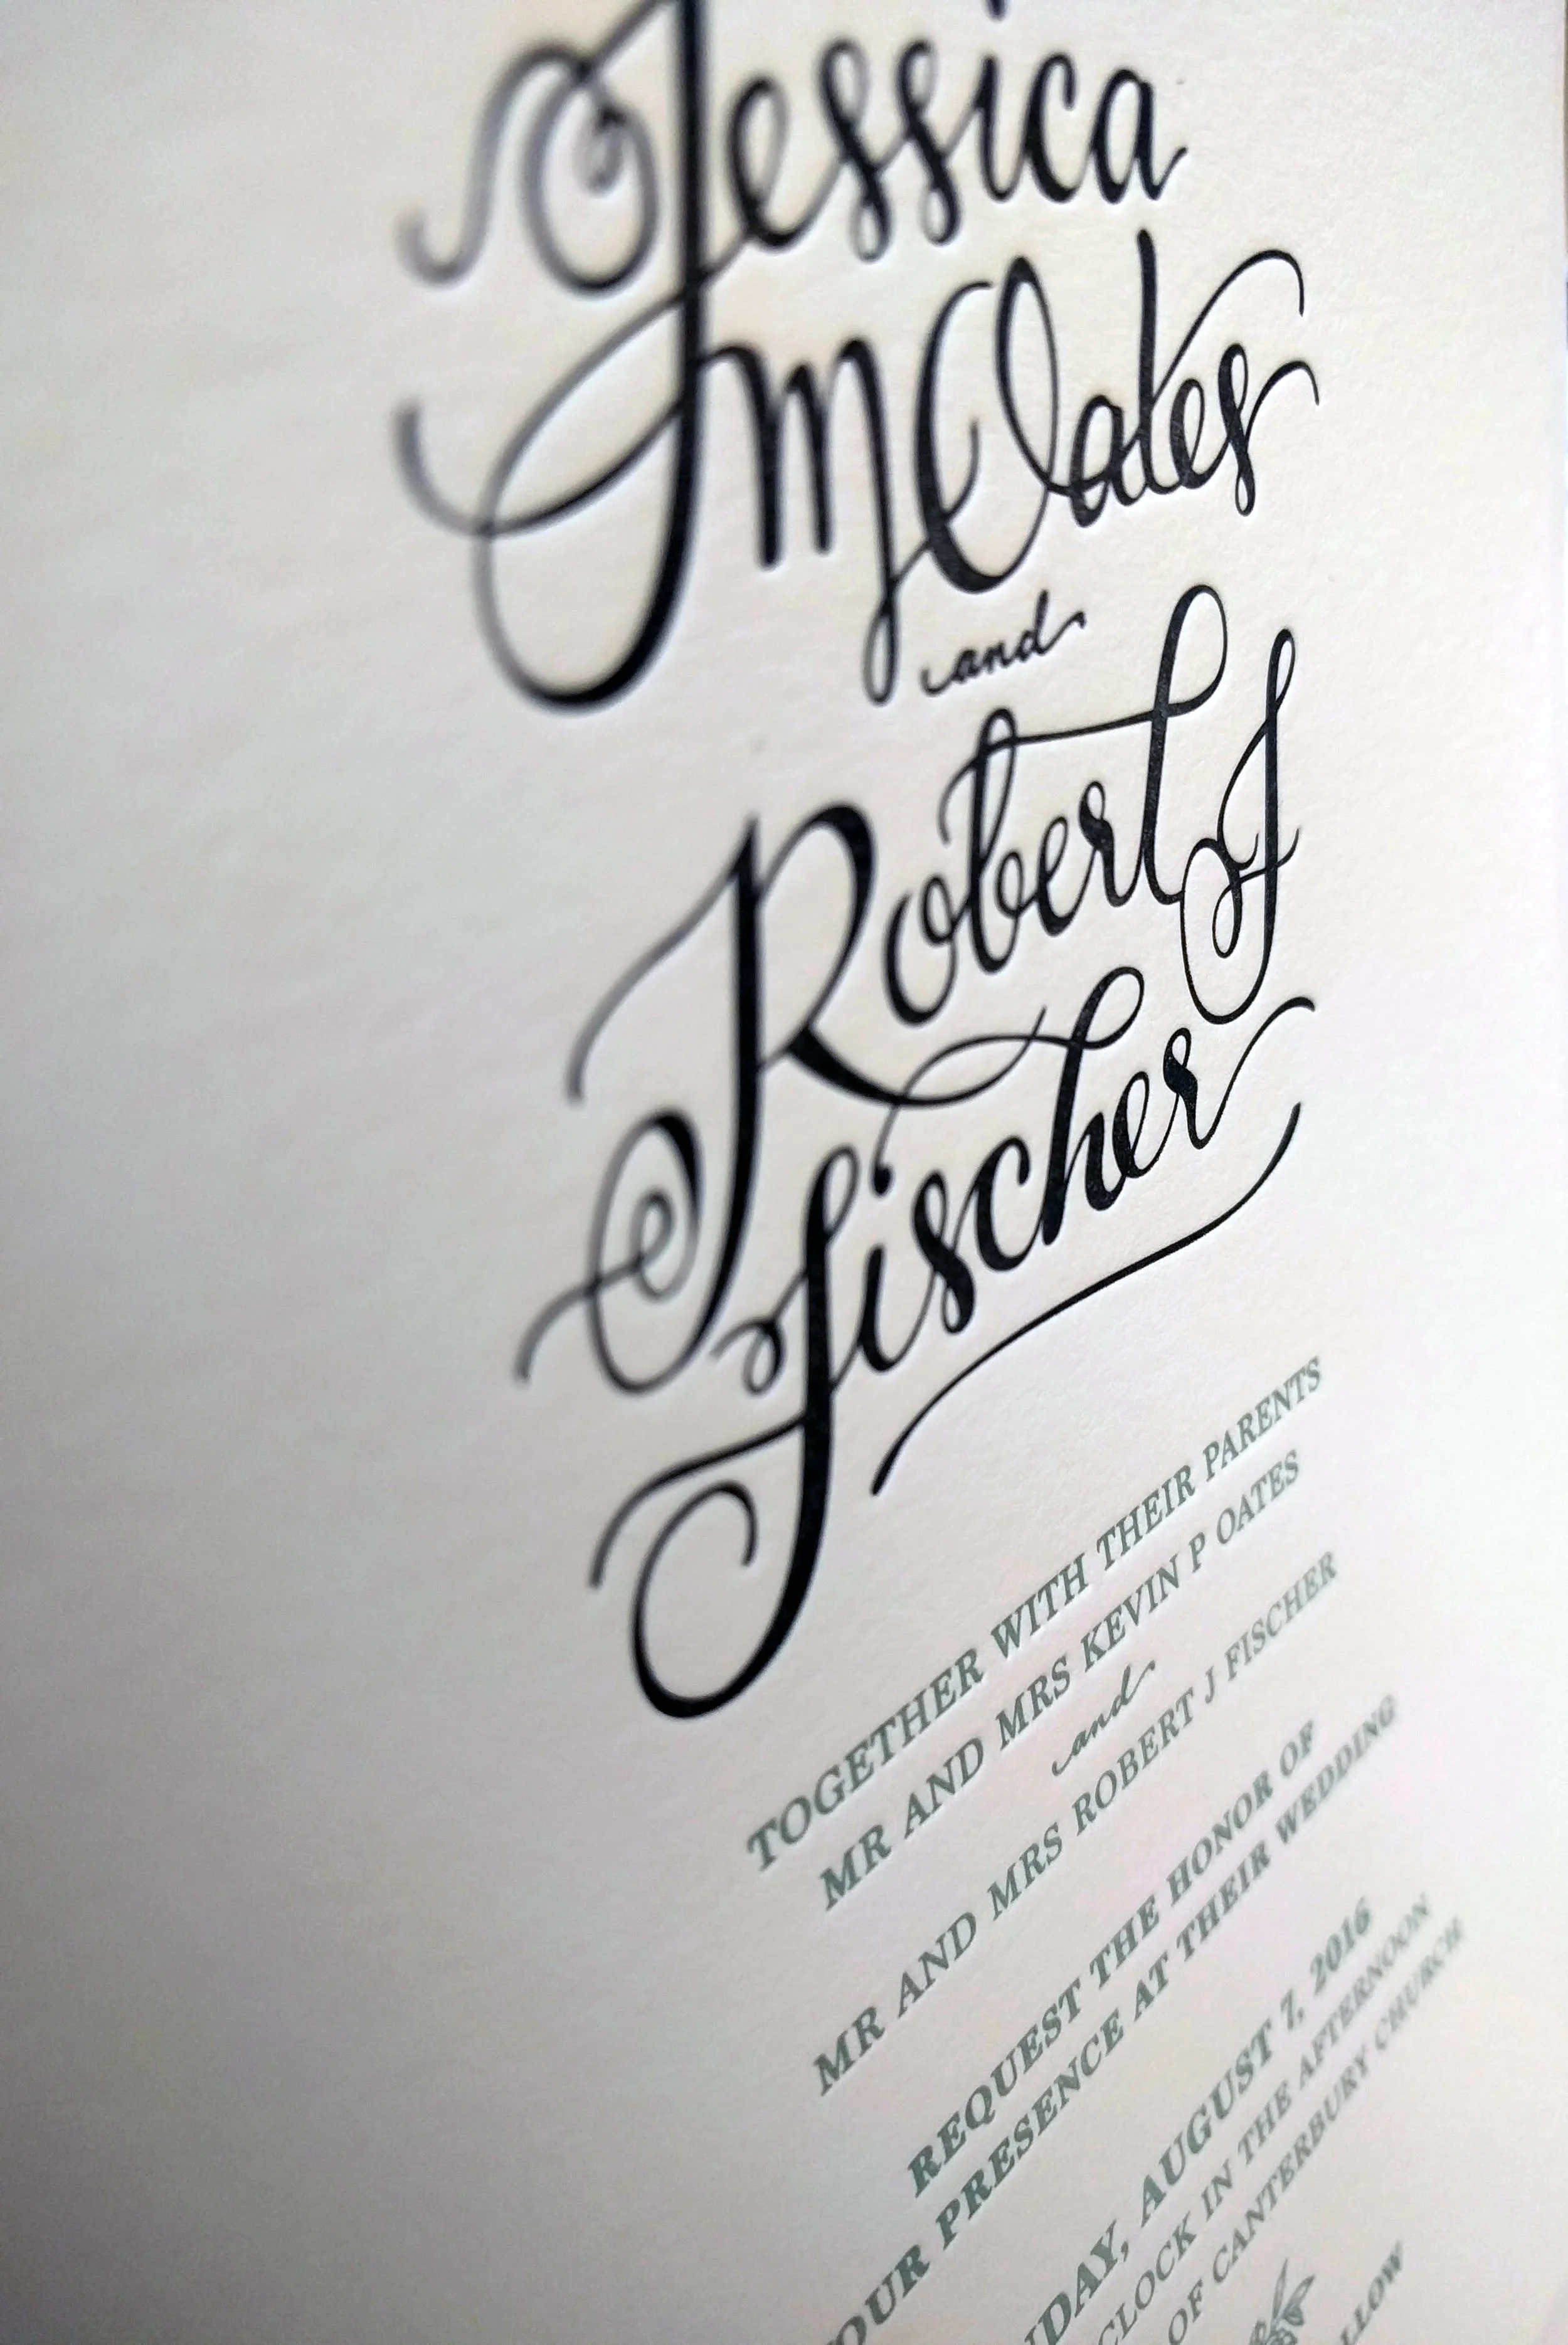 Jessica
M Oates
and
Robert J
Fischer
TOGETHER WITH THEIR PARENTS
MR AND MRS KEVIN P OATES
and
MR AND MRS ROBERT J FISCHER
REQUEST THE HONOR OF
OUR PRESENCE AT THEIR WEDDING
NDAY, AUGUST 7, 2016
CLOCK IN THE AFTERNOON
OF CANTERBURY CHURCH
LLOW